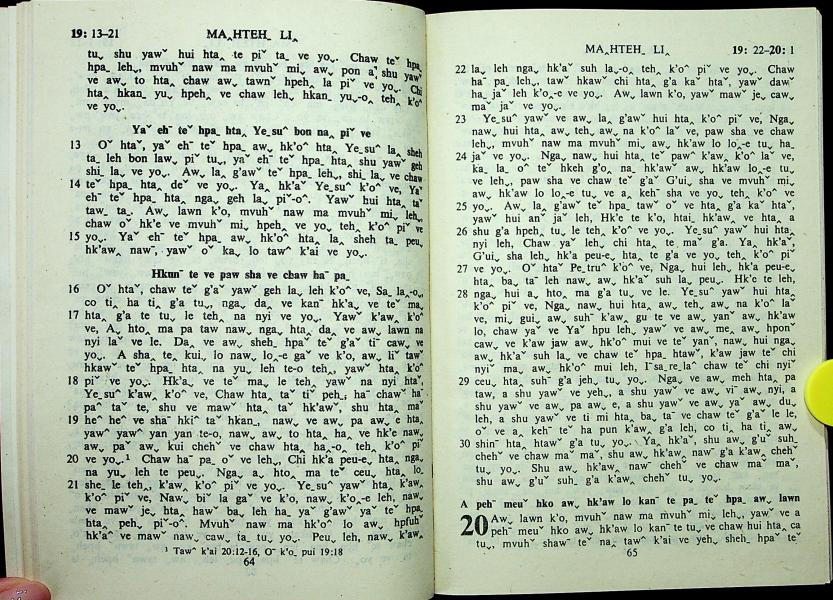 19: 13–21 MA‸HTEH˗ LI‸
tuˬ, shu yawˇ hui hta‸ te piˇ ta˗ ve yoˬ. Chaw teˇ hpa‸
hpa˗ leh‸, mvuhˇ naw ma mvuhˇ mi‸ aw‸ pon a‸ shu yawˇ
ve aw‸ to hta‸ chaw aw‸ tawnˇ hpeh‸ la piˇ ve yoˬ. Chi
hta‸ hkan˗ yu‸ hpeh‸ ve chaw leh‸ hkan˗ yuˬ-o‸ teh‸ k'oˆ
ve yoˬ.
Yaˇ eh⁻ teˇ hpa‸ hta‸ Ye˗suˆ bon na‸ piˇ ve
13 Oˇ htaˇ, yaˇ eh⁻ teˇ hpa‸ aw‸ hk'oˆ hta‸ Ye˗suˆ la‸ sheh
ta˗ leh bon lawˬ piˇ tuˬ, yaˇ eh⁻ teˇ hpa‸ hta‸ shu yawˇ geh
shi˗ laˬ ve yoˬ. Awˬ la‸ g'awˇ teˇ hpa‸ leh‸, shi˗ laˬ ve chaw
14 teˇ hpa‸ hta‸ deˇ ve yoˬ. Ya‸ hk'aˇ Ye˗suˆ k'oˆ ve, Yaˇ
eh⁻ teˇ hpa‸ hta‸ nga˗ geh laˬ piˇ-oˆ. Yawˇ hui htaˇ ta
taw˗ ta˗. Aw‸ lawn k'o, mvuhˇ naw ma mvuhˇ mi‸ leh‸
chaw oˇ hk'e ve mvuhˇ mi‸ hpehˬ ve yoˬ teh‸ k'oˆ piˇ ve
15 yoˬ. Yaˇ eh⁻ teˇ hpa‸ aw‸ hk'oˆ hta‸ la‸ sheh ta‸ peu‸
hk'aw‸ nawˇ, yawˇ oˇ ka‸ lo tawˇ k'ai ve yoˬ.
Hkun⁻ te ve paw sha ve chaw ha⁻ pa˗
16 Oˇ htaˇ, chaw teˇ g'aˇ yawˇ geh la‸ leh k'oˆ ve, Sa˗ la˗-oˬ,
co ti‸ ha ti‸ g'a tuˬ, nga˗ daˬ ve kan⁻ hk'aˬ ve teˇ ma‸
17 hta‸ g'a te tu‸ le teh‸ na nyi ve yoˬ. Yawˇ k'awˬ k'oˆ
ve, A‸ hto‸ ma pa taw naw‸ nga˗ hta‸ daˬ ve aw‸ lawn na
nyi laˇ ve le. Daˬ ve aw‸ sheh‸ hpaˇ teˇ g'aˇ tiˇ cawˬ ve
yoˬ. A sha‸ te kui‸ lo naw‸ lo‸-e gaˇ ve k'o, aw‸ liˇ tawˇ
hkawˇ teˇ hpa‸ hta‸ na yu‸ leh te-o teh‸, yawˇ hta‸ k'oˆ
18 piˇ ve yoˬ. Hk'aˬ ve te maˬ le teh‸ yawˇ na nyi htaˇ,
Ye˗suˆ k'awˬ k'oˆ ve, Chaw hta‸ taˇ tiˇ peh‸; ha⁻ chawˇ ha⁻
paˇ taˇ te, shu ve mawˇ hta‸ taˇ hk'awˇ, shu hta‸ maˇ
19 heˆ heˆ ve shaˇ hkiˆ taˇ hkan‸, naw‸ ve aw‸ pa aw‸ e hta‸
yawˇ yawˇ yan yan te-o, naw‸ aw‸ to hta‸ ha‸ ve hk'e naw‸
aw‸ paˇ aw‸ kui cheh˅ ve chaw hta‸ haˬ-o‸ teh‸ k'oˆ piˇ
20 ve yoˬ.¹ Chaw ha⁻ pa˗ oˇ ve leh‸, Chi hk'a peu-e hta‸ nga˗
na yu‸ leh te peu‸. Nga˗ a‸ hto‸ ma teˇ ceuˬ hta‸ lo
21 she‸ le teh‸ k'awˬ k'oˆ piˇ ve yoˬ. Ye˗suˆ yawˇ hta‸ k'aw‸
k'oˆ piˇ ve, Naw‸ biˇ la gaˇ ve k'o, naw‸ k'o‸-e leh, naw‸
ve mawˇ je‸ hta‸ hawˇ ba‸ leh ha⁻ yaˇ g'awˇ yaˇ teˇ hpa‸
hta‸ peh‸ piˇ-oˆ. Mvuhˇ naw ma hk'oˆ lo aw‸ hpfuhˇ
hk'aˆ ve mawˇ naw‸ caw‸ ta˗ tuˬ yoˬ. Peu‸ leh, naw‸ k'aw‸
¹ Tawˆ k'ai 20:12-16, O⁻ k'o‸ pui 19:18
64
MA‸HTEH˗ LI‸ 19: 22–20: 1
22 la‸ leh nga‸ hk'aˇ suh la‸-o‸ teh‸ k'oˆ piˇ ve yoˬ. Chaw
ha⁻ pa˗ leh‸, tawˇ hkawˇ chi hta‸ g'a kaˇ htaˇ, yawˇ dawˇ
ha‸ jaˇ leh k'o‸-e ve yoˬ. Aw‸ lawn k'o, yawˇ mawˇ je‸ cawˬ
maˇ jaˇ ve yoˬ.
23 Ye˗suˆ yawˇ ve aw‸ la‸ g'awˇ hui hta‸ k'oˆ piˇ ve, Nga˗
naw‸ hui hta‸ aw‸ teh‸ aw‸ na k'oˆ laˇ ve, paw sha ve chaw
leh‸, mvuhˇ naw ma mvuhˇ mi‸ aw‸ hk'aw lo lo‸-e tu‸ ha
24 jaˇ ve yoˬ. Nga˗ naw‸ hui hta‸ teˇ pawˆ k'awˬ k'oˆ laˇ ve,
ka˗ la‸ oˇ te hkeh g'o‸ na‸ hk'awˇ aw‸ hk'aw lo‸-e tuˬ
ve leh‸, paw sha ve chaw teˇ g'aˇ G'ui‸ sha ve mvuhˇ mi‸
aw‸ hk'aw lo lo‸-e tuˬ ve a‸ kehˇ sha ve yoˬ teh‸ k'oˆ ve
25 yoˬ. Awˬ la‸ g'awˇ teˇ hpa‸ tawˇ oˇ ve hta‸ g'a kaˇ htaˇ,
yawˇ hui anˇ jaˇ leh, Hk'e te k'o, htai‸ hk'awˇ ve hta‸ a
26 shu g'a hpeh‸ tuˬ le teh‸ k'oˆ ve yoˬ. Ye˗suˆ yawˇ hui hta‸
nyi leh, Chaw yaˇ leh‸ chi hta‸ te maˇ g'a. Ya‸ hk'aˇ,
G'ui‸ sha leh‸ hk'a peu-e hta‸ te g'a ve yoˬ teh‸ k'oˆ piˇ
27 ve yoˬ. Oˇ htaˇ Pe˗truˆ k'oˆ ve, Nga˗ hui leh‸ hk'a peu-e
hta‸ ba‸ ta⁻ leh naw‸ aw‸ hk'aˇ suh la‸ peu‸. Hk'e te leh‸
28 nga˗ hui a‸ hto‸ ma g'a tuˬ ve le. Ye˗suˆ yawˇ hui hta‸
k'oˆ piˇ ve, Nga˗ naw‸ hui hta‸ aw‸ teh‸ aw‸ na k'oˆ laˇ
ve, mi‸ gui‸ aw‸ suhˆ k'awˬ gu te ve aw‸ yanˇ aw‸ hk'aw
lo, chaw yaˇ ve Yaˇ hpu leh‸ yawˇ ve aw‸ me‸ aw‸ hponˇ
cawˬ ve k'aw jaw aw‸ hk'oˆ mui ve teˇ yanˇ, naw‸ hui nga˗
aw‸ hk'aˇ suh la ve chaw teˇ hpa‸ htawˇ, k'aw jaw te chi
nyiˇ ma‸ aw‸ hk'oˆ mui leh, I⁻sa˗re˗laˆ chaw te chi nyiˇ
29 ceu‸ hta‸ suh⁻ g'a jeh‸ tuˬ yoˬ. Nga˗ ve aw‸ meh hta‸ pa
taw, a shu yawˇ ve yeh‸, a shu yawˇ ve aw‸ viˇ aw‸ nyi, a
shu yawˇ ve aw‸ pa aw‸ e, a shu yawˇ ve aw‸ yaˇ aw‸ du‸
leh, a shu yawˇ ve ti mi hta‸ ba‸ ta⁻ ve chaw teˇ g'aˇ le le,
oˇ ve a‸ kehˇ te ha pun k'awˬ g'a leh, co ti‸ ha ti‸ aw‸
30 shin⁻ hta‸ htawˇ g'a tuˬ yoˬ. Ya‸ hk'aˇ, shu aw‸ g'uˇ suh˗
chehˇ ve chaw maˇ maˇ, shu aw‸ hk'aw‸ nawˇ g'a k'aw‸ chehˇ
tuˬ yoˬ. Shu aw‸ hk'aw‸ nawˇ chehˇ ve chaw maˇ maˇ,
shu aw‸ g'uˇ suh g'a k'aw‸ chehˇ tuˬ yoˬ.
A peh⁻ meuˇ hko aw‸ hk'aw lo kan⁻ te pa˗ teˇ hpa‸ aw‸ lawn
20 Aw‸ lawn k'o, mvuhˇ naw ma mvuhˇ mi‸ leh‸, yawˇ ve a
peh⁻ meuˇ hko aw‸ hk'aw lo kan⁻ te tuˬ ve chaw hui hta‸ ca
tuˬ, mvuhˇ shawˇ teˇ na‸ tawˆ k'ai ve yeh‸ sheh‸ hpaˇ teˇ
65